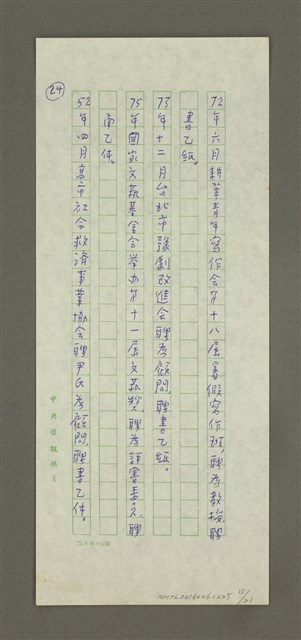 24
72年六月耕莘青年寫作會第十八屆暑假寫作班,聘為教授,聘
書乙紙。
73年十二月台北市話劇改進會聘為顧問,聘書乙紙。
75年國家文藝基金會举办第十一屆文藝獎,聘為評審委員,聘
函乙件。
52年四月高市社會救濟事業協會聘尹氏為顧問,聘書乙件。
中央日報稿
NMTL20160260225
15/21